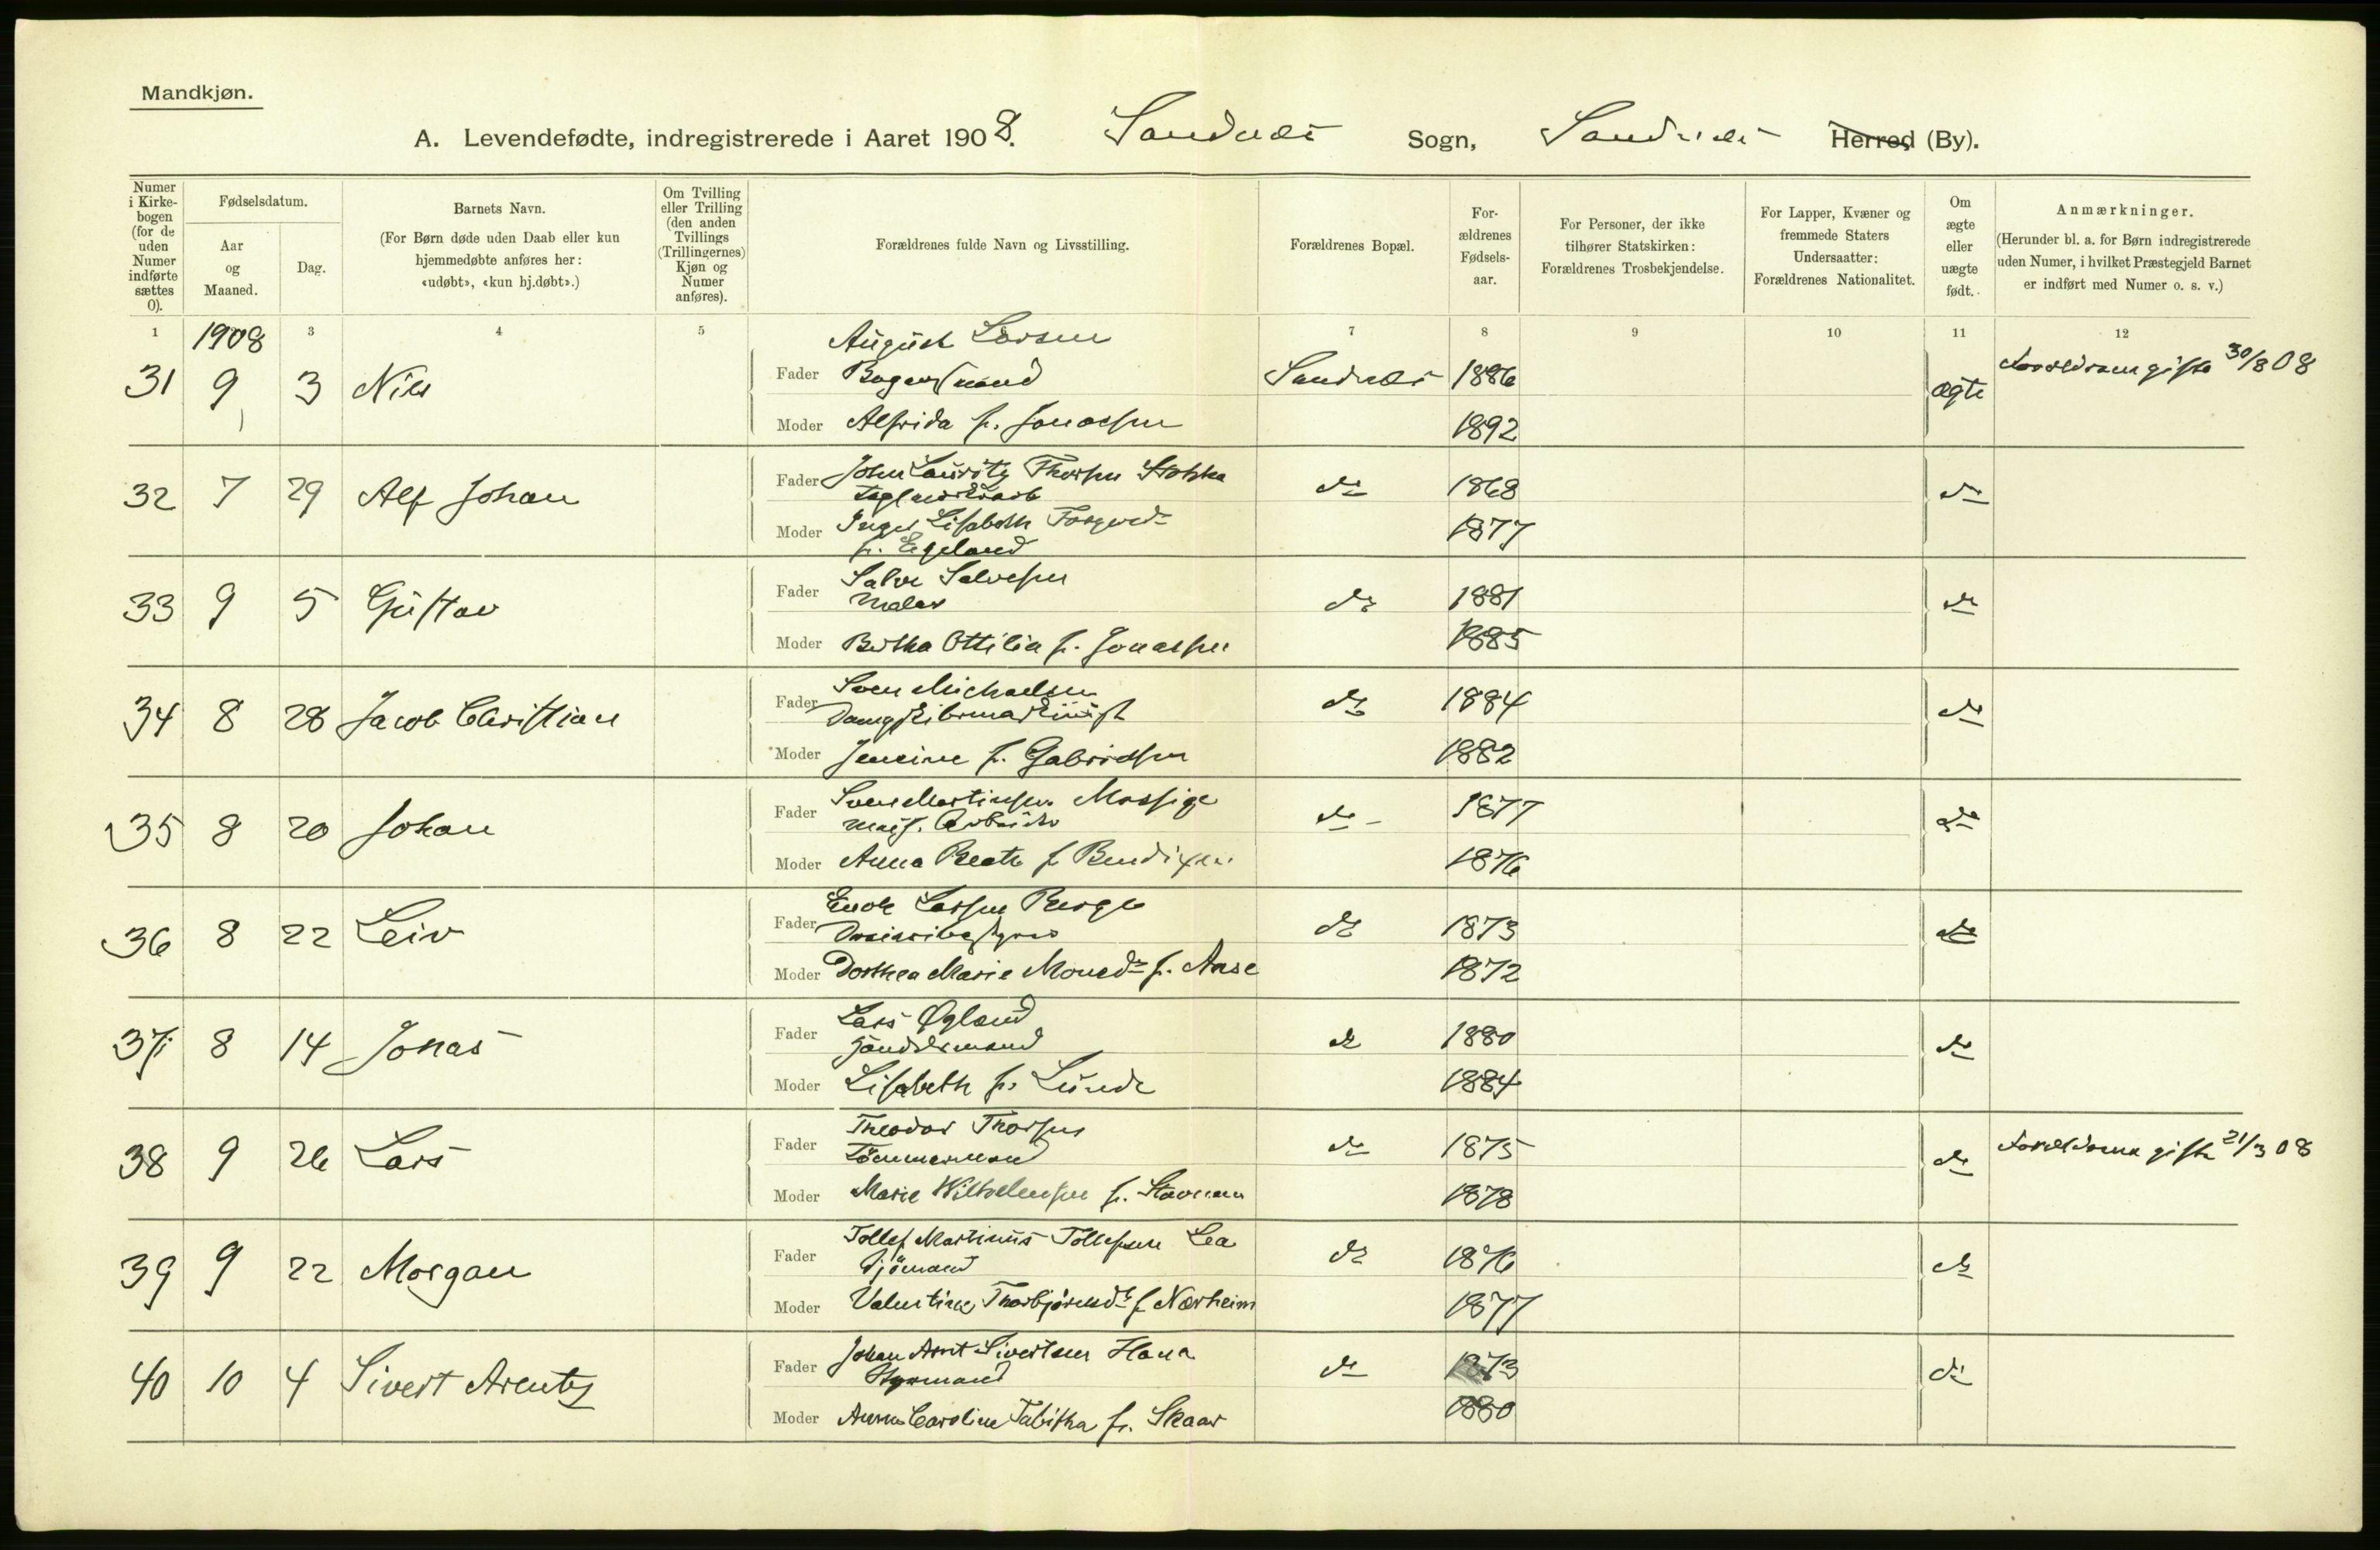 Mandkjøn.
A. Levendefødte, indregistrerede i Aaret 1908. Sandnæs Sogn, Sandnæs Herred (By).
Numer i Kirkebogen (for de uden Numer indførte sættes 0).
Fødselsdatum.
Aar og Maaned.
Dag.
Barnets Navn.
(For Børn døde uden Daab eller kun hjemmedøbte anføres her: «udøbt», «kun hj.døbt».)
Om Tvilling eller Trilling (den anden Tvillings (Trillingernes) Kjøn og Numer anføres).
Forældrenes fulde Navn og Livsstilling.
Forældrenes Bopæl.
Forældrenes Fødselsaar.
For Personer, der ikke tilhører Statskirken: Forældrenes Trosbekjendelse.
For Lapper, Kvæner og fremmede Staters Undersaatter: Forældrenes Nationalitet.
Om ægte eller uægte født.
Anmærkninger.
(Herunder bl. a. for Børn indregistrerede uden Numer, i hvilket Præstegjeld Barnet er indført med Numer o. s. v.)
1 1908 3 4 5 7 8 9 10 11 12
August Larsen
31 9 3 Nils Fader Bogersmand Sandnæs 1886 ægte Forældrene gifte 30/8 08
Moder Alfrida f. Jonassen 1892
32 7 29 Alf Johan Fader John Lauritz Thorsen Stokka do 1868 do
Moder Inger Lisabeth Torgersd. 1877
f. Egeland
33 9 5 Gustav Fader Salve Salvesen do 1881 do
Maler
Moder Bertha Ottilia f. Jonassen 1885
34 8 28 Jacob Christian Fader Sven Michaelsen do 1884 do
Dampskibsmaskinist
Moder Jensine f. Gabrielsen 1882
35 8 20 Johan Fader Sven Martinsen Mossige do 1877 do
Moder Anna Beate f. Bendixen 1876
mas. Arbeider
36 8 22 Leiv Fader Enok Larsen Berge do 1873 do
Moder Dorthea Marie Monsdr f. Aase 1872
37 8 14 Jonas Fader Lars Øgland do 1880 do
Handelsmand
Moder Lisabeth f. Lunde 1884
38 9 26 Lars Fader Theodor Thorsen do 1875 do Forældrene gifte 21/3 08
Tømmermand
Moder Marie Wilhelmsen f. Stavnem 1878
39 9 22 Morgan Fader Tollef Martinius Tollefsen Lea do 1876 do
Sjømand
Moder Valentine Thorbjørnsdt f. Nærheim 1877
40 10 4 Sivert Arentz Fader Johan Arnt Sivertsen Hana do 1873 do
Styrmand
Moder Anna Caroline Tabitha f. Skaar 1880